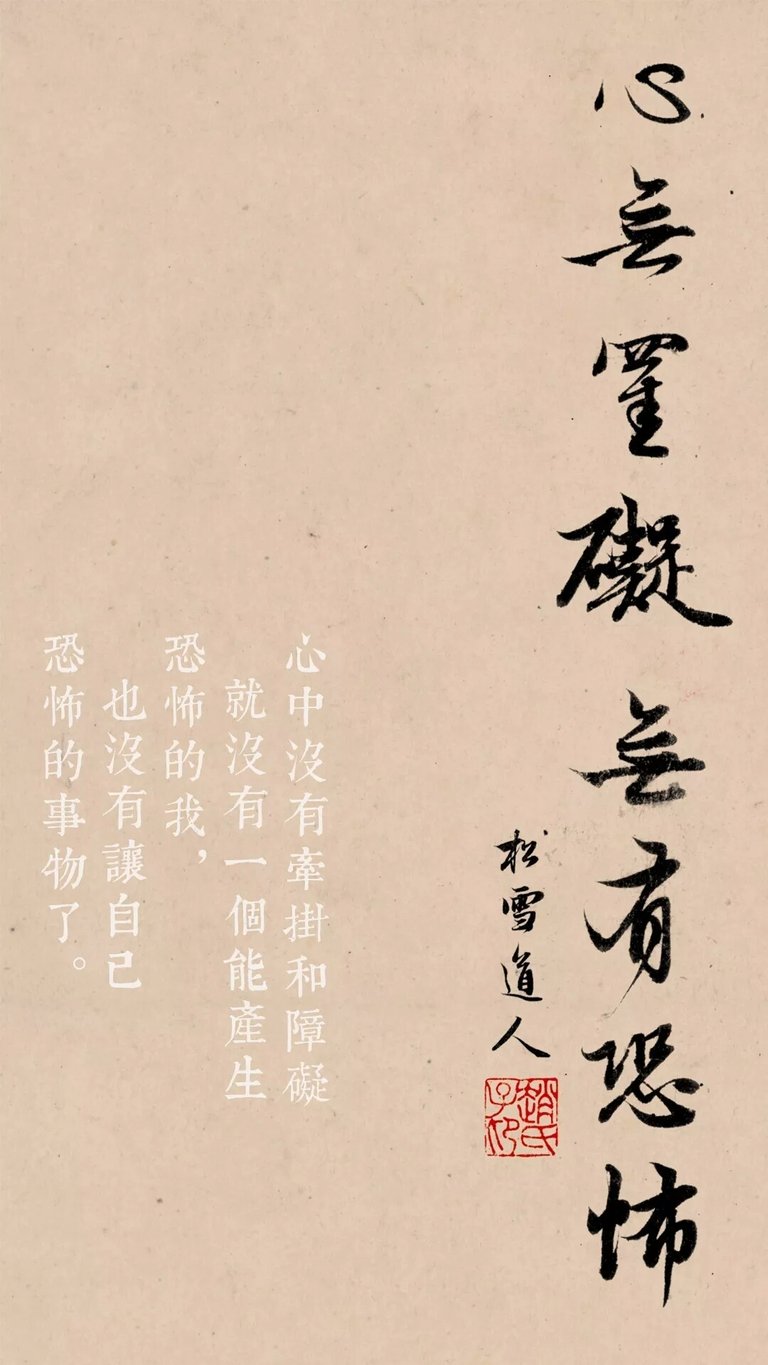 心無罣礙無有恐怖
松雪道人
趙氏子昂
心中沒有牽掛和障礙
就沒有一個能產生
恐怖的我，
也沒有讓自己
恐怖的事物了。